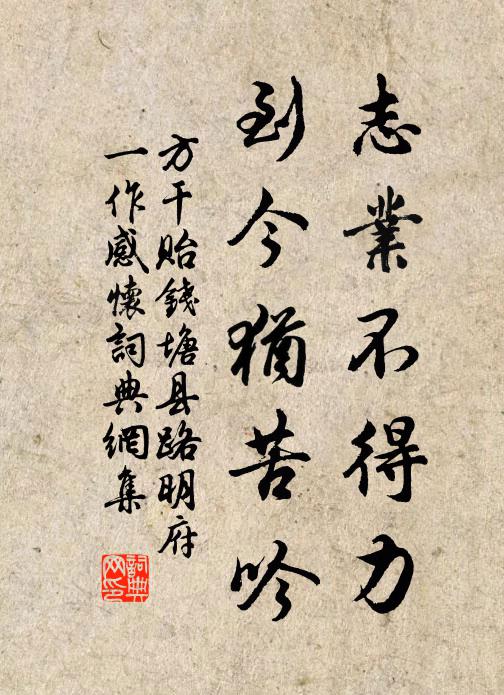 志業不得力
到今猶苦吟
方干貽錢塘县路明府
一作感懷詞典網集
詞典
网印